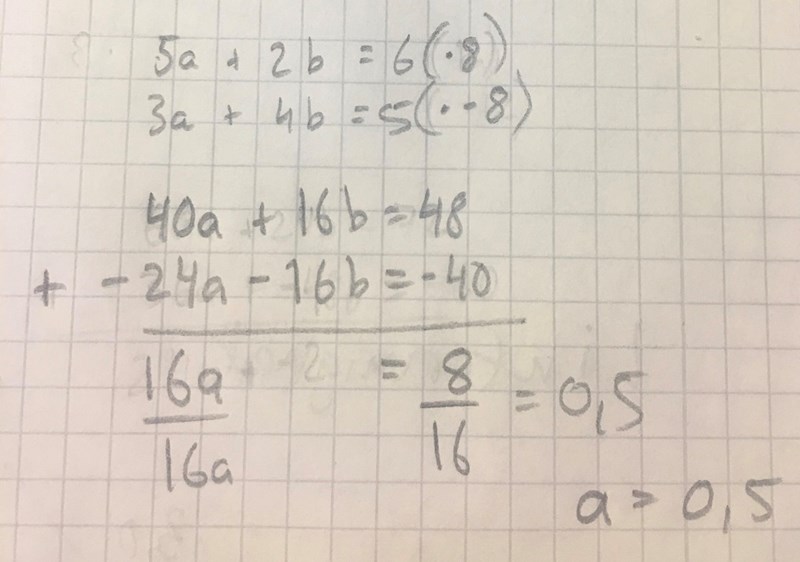 5a + 2b = 6(·8)
3a + 4b = 5(·-8)
40a + 16b = 48
+ -24a - 16b = -40
16a/16a = 8/16 = 0,5
a = 0,5